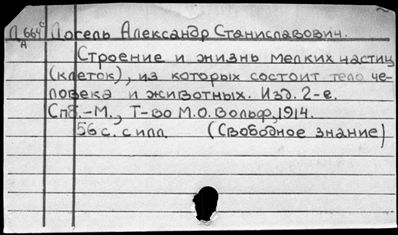 Д 664 с Догель Александр Станиславович.
А
Строение и жизнь мелких частиц
(клеток), из которых состоит тело че-
ловека и животных. Изд. 2-е.
Спб.-М., Т-во М.О. Вольф, 1914.
56 с. с илл. (Свободное знание)